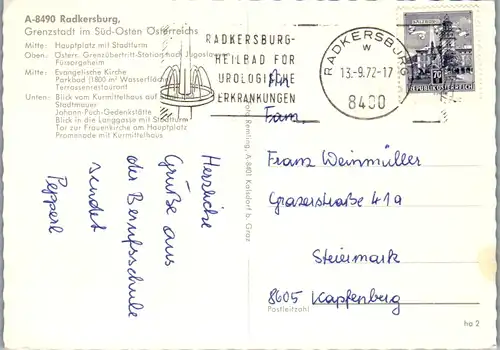 A-8490 Radkersburg,
Grenzstadt im Süd-Osten Österreichs
Mitte: Hauptplatz mit Stadtturm
Oben: Österr. Grenzübertritt-Station nach Jugoslawien
Fürsorgeheim
Mitte: Evangelische Kirche
Parkbad (1800 m² Wasserfläche)
Terrassenrestaurant
Unten: Blick vom Kurmittelhaus auf
Stadtmauer
Johann-Puch-Gedenkstätte
Blick in die Langgasse mit Stadtturm
Tor zur Frauenkirche am Hauptplatz
Promenade mit Kurmittelhaus
RADKERSBURG-
HEILBAD FÜR
UROLOGISCHE
ERKRANKUNGEN
RADKERSBURG
w
13.-9.72-17
8490
70
REPUBLIK ÖSTERREICH
Herzliche
Grüße aus
der Berufsschule
sendet
Pepperl
Foto Remling, A-8401 Kalsdorf b. Graz
An
Fam.
Franz Weinmüller
Grazerstraße 41a
Steiermark
8605 Kapfenberg
Postleitzahl
ha 2